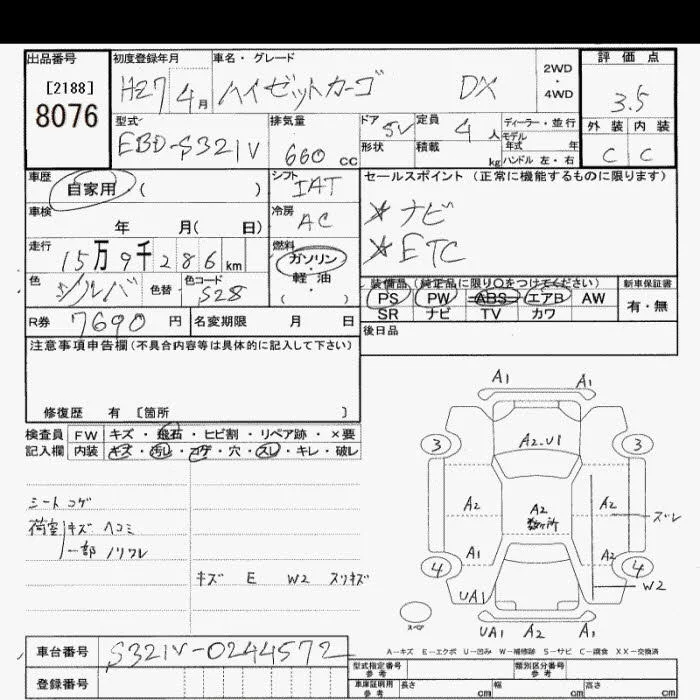 出品番号
[2188]
8076
初度登録年月
H27 4月
車名・グレード
ハイゼットカーゴ DX
2WD
・
4WD
評価点
3.5
外装 内装
C C
型式
EBD-S321V
排気量
660 cc
ドア 5V
形状
定員 4人
積載 kg
ディーラー・並行
モデル
年式 年
ハンドル 左・右
車歴
自家用 ( )
シフト
IAT
セールスポイント (正常に機能するものに限ります)
ナビ
ETC
車検
年 月( 日)
冷房
AC
走行
15万9千286km
燃料
ガソリン・
軽・油
( ・ )
色
シルバ 色替
色コード
S28
装備品 (純正品に限り○をつけてください)
PS PW ABS エアB AW
SR ナビ TV カワ
新車保証書
有・無
R券 7690円
名変期限 月 日
後日品
注意事項申告欄(不具合内容等は具体的に記入して下さい)
修復歴 有 〔箇所 〕
検査員 FW キズ・飛石・ヒビ割・リペア跡・×要
記入欄 内装 キズ・汚レ・コゲ・穴・スレ・キレ・破レ
シートコゲ
荷室 キズ ヘコミ
一部ノリワレ
キズ E W2 スリキズ
A1 A1
3 A2.U1 3
A2 A2
数ヶ所 A2 ズレ
A1 A2
4 4
UA1 W2
スペア
UA1 A2 A1
A-キズ E-エクボ U-凹み W-補修跡 S-サビ C-腐食 XX-交換済
車台番号 S321V-0244572
登録番号
型式指定番号
参考
類別区分番号
参考
車庫証明用
参考
長さ cm 幅 cm 高さ cm